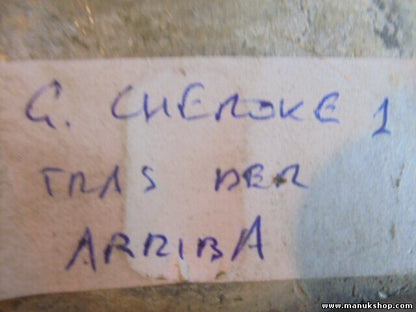 G. CHEROKE 1
TRAS DER
ARRIBA
www.manukshop.com